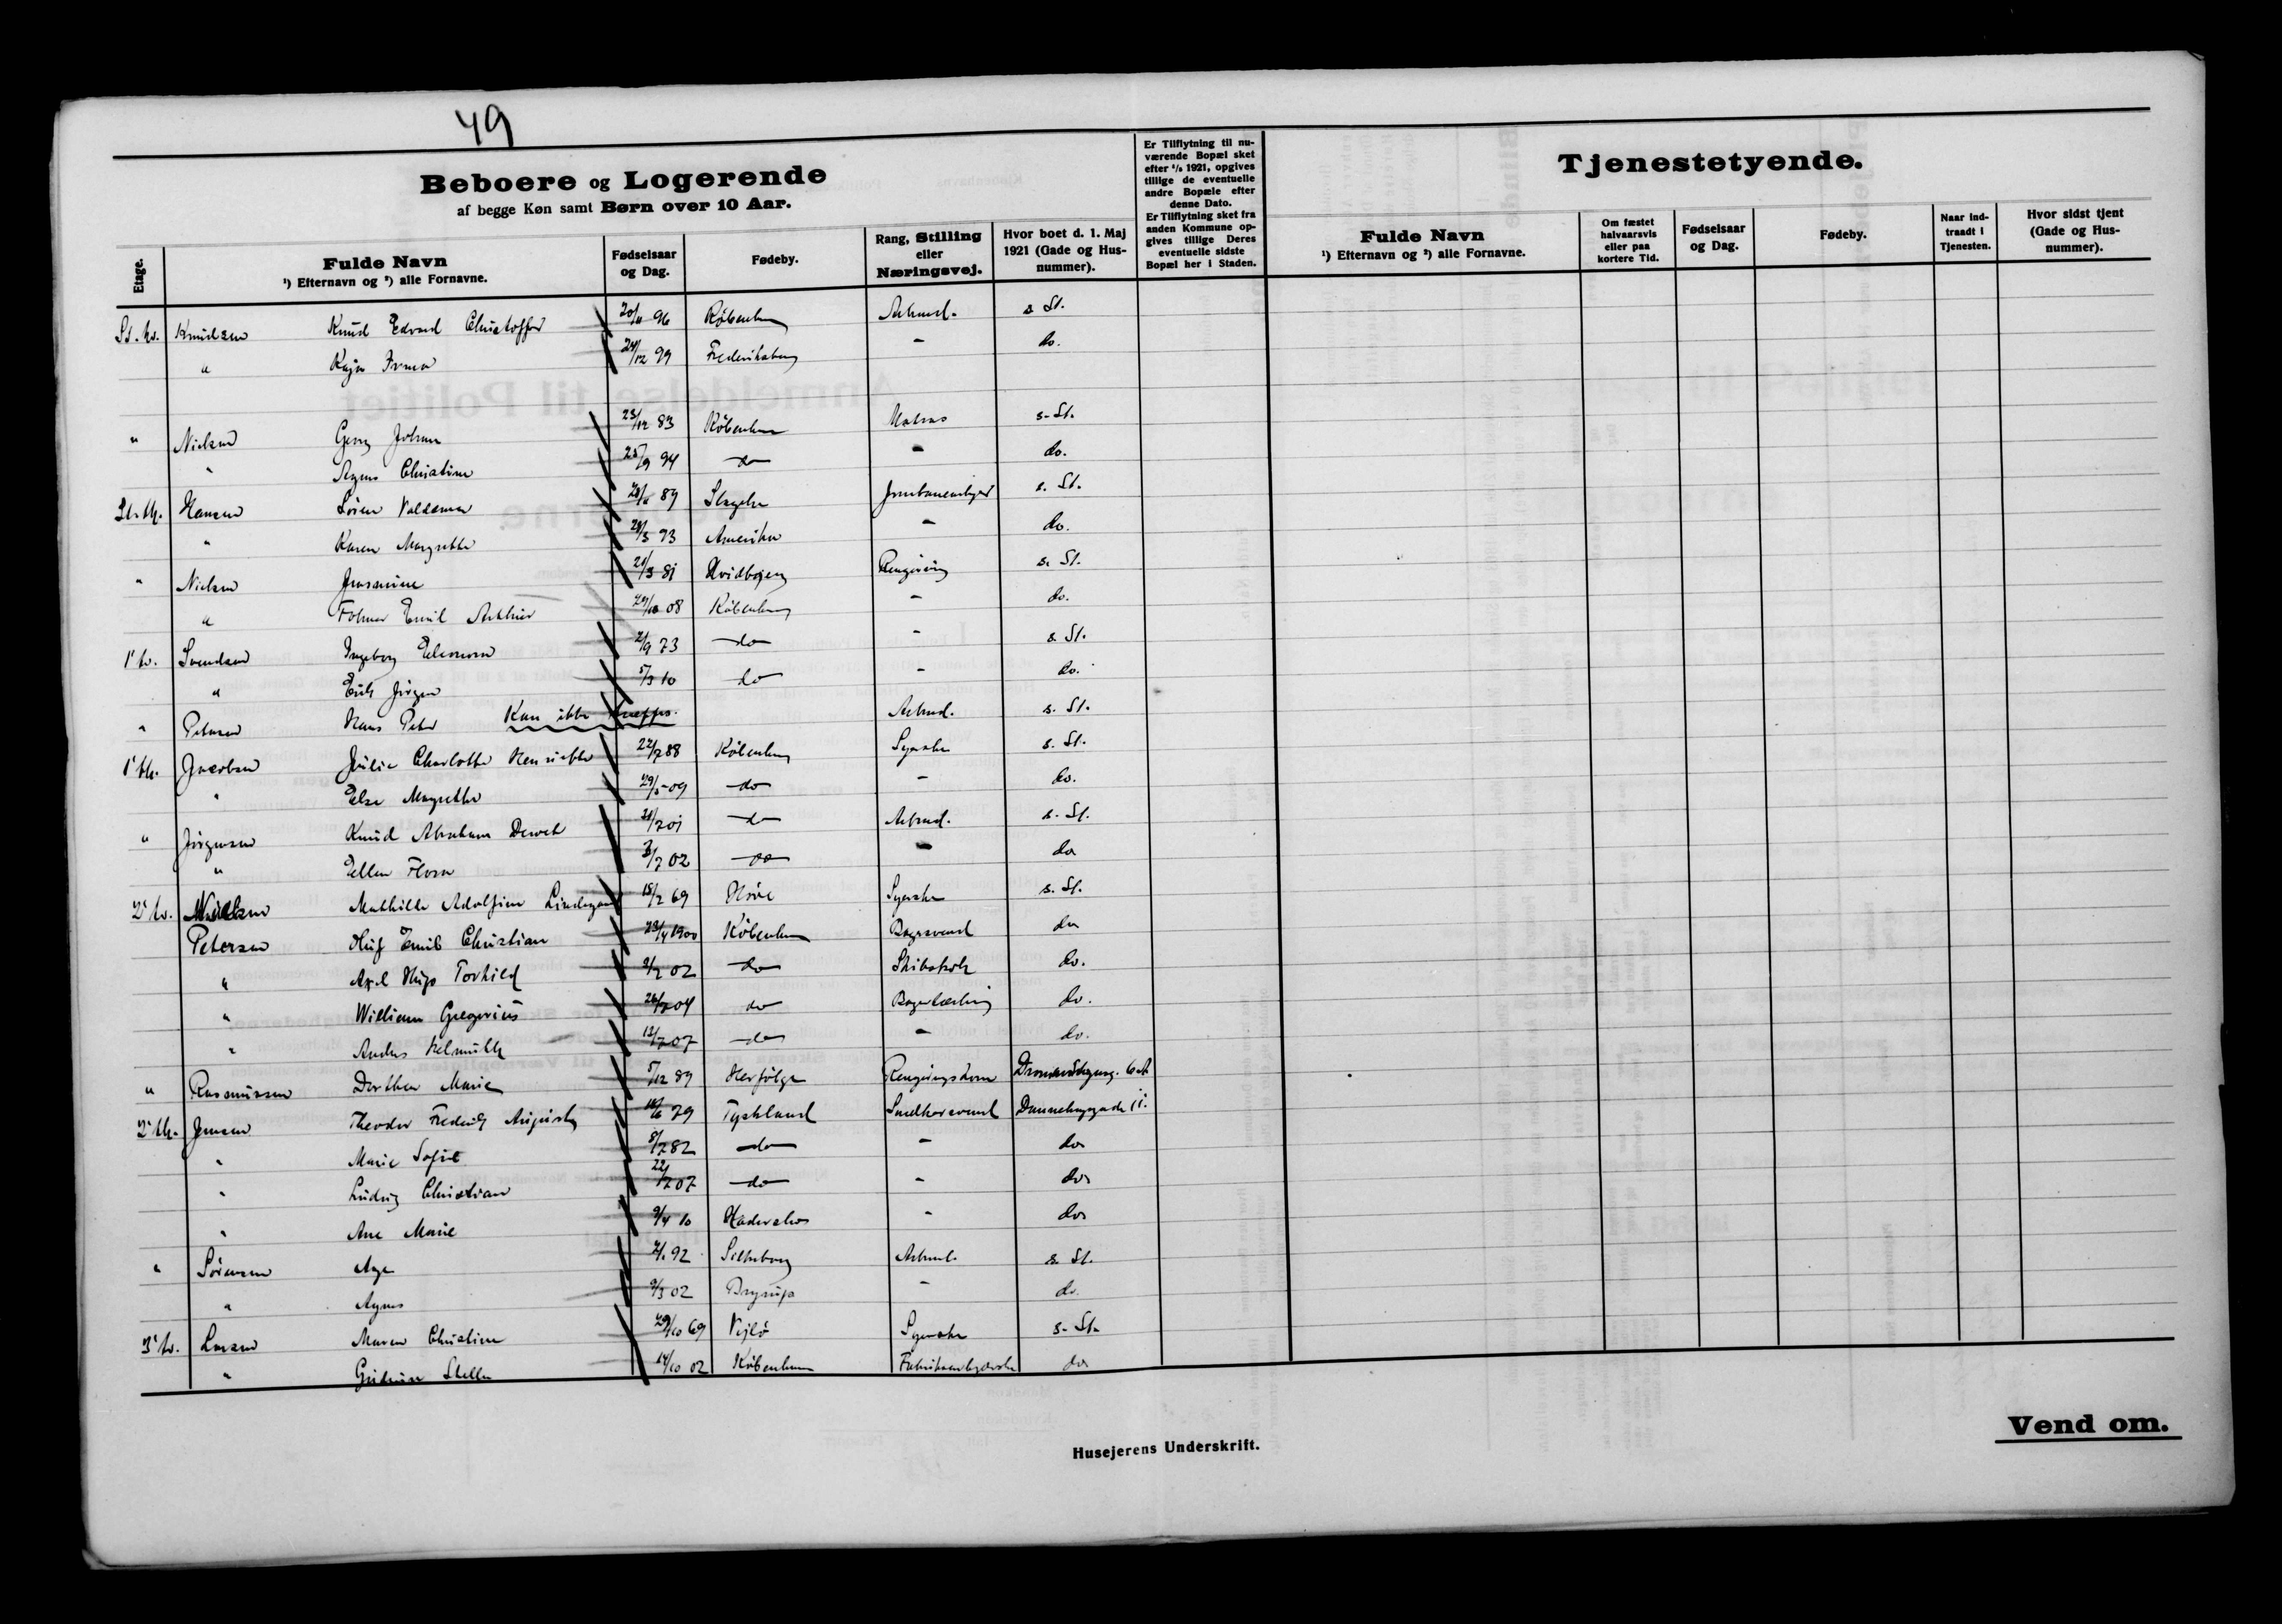 49
Beboere og Logerende
af begge Køn samt Børn over 10 Aar.
Er Tilflytning til nuværende Bopæl sket efter 1/5 1921, opgives tillige de eventuelle andre Bopæle efter denne Dato.
Er Tilflytning sket fra anden Kommune opgives tillige Deres eventuelle sidste Bopæl her i Staden.
Tjenestetyende.
Etage.
Fulde Navn
¹) Efternavn og ²) alle Fornavne.
Fødselsaar og Dag.
Fødeby.
Rang, Stilling eller Næringsvej.
Hvor boet d. 1. Maj 1921 (Gade og Husnummer).
Fulde Navn
¹) Efternavn og ²) alle Fornavne.
Om fæstet halvaarsvis eller paa kortere Tid.
Fødselsaar og Dag.
Fødeby.
Naar indtraadt i Tjenesten.
Hvor sidst tjent (Gade og Husnummer).
St. tv. Knudsen Knud Edvard Christoffer 20/11 96 København Arbmd. s St.
" Kaja Irma 24/12 99 Frederiksberg - do.
" Nielsen Georg Johan 23/12 83 København Matros s. St.
" Agnes Christine 25/9 94 do - do.
St. th. Hansen Søren Valdemar 89 Slagelse s. St.
" Karen Margrethe 28/3 93 Amerika - do.
" Nielsen Jensmine 21/3 81 Hvidbjerg Rengøring s. St.
" Folmer Emil Arthur 29/10 08 København - do.
1' tv. Svendsen Ingeborg Eleonora 2/9 73 do - s. St.
" Erik Jørgen 5/3 10 do - do.
" Petersen Hans Peter Kan ikke træffes. Arbmd. s. St.
1' th. Jacobsen Julie Charlotte Henriette 22/7 88 København Syerske s. St.
" Else Magrethe 29/5 09 do - do.
" Jørgensen Knud Abraham 21/7 01 do Arbmd. s. St.
" Ellen Flora 3/7 02 do - do
2' tv. Nielsen Mathilde Adolfine 18/2 69 Syerske s. St.
Petersen Emil Christian 23/4 1900 København Bagersvend do
" Axel Hugo Torkild 9/2 02 do do.
" William Gregorius 26/2 04 do Bagerlærling do.
" Anders Helmuth 12/7 07 do - do.
" Rasmussen Dorthea Marie 5/12 89 Herfølge Rengøringskone
2' th. Jensen Theodor Frederik August 79 Tyskland Snedkersvend Dannebrogsgade 11.
" Marie Sofie 8/7 82 do - do
" Ludvig Christian 22/7 07 do - do
" Ane Marie 9/4 10 Haderslev - do
" Sørensen Aage 92 Silkeborg Arbmd. s. St.
" Agnes 9/3 02 Bryrup - do.
3' tv. Larsen Maren Christine 29/10 69 Vejlø Syerske s. St.
" Gudrun Stella 14/10 02 København Fabriksarbejderske do
Husejerens Underskrift.
Vend om.